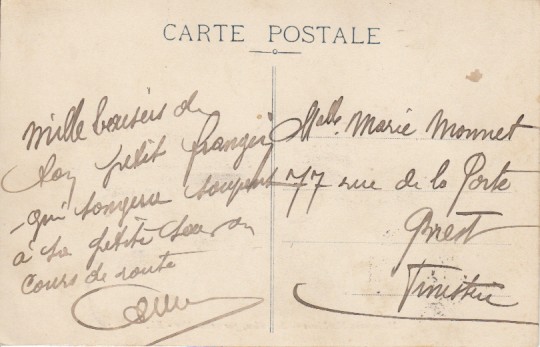 CARTE POSTALE
Mille baisers du
ton petit frangin
qui songera souvent
à sa petite sœur en
cours de route
Melle Marie Monnet
77 rue de la Porte
Brest
Finistère